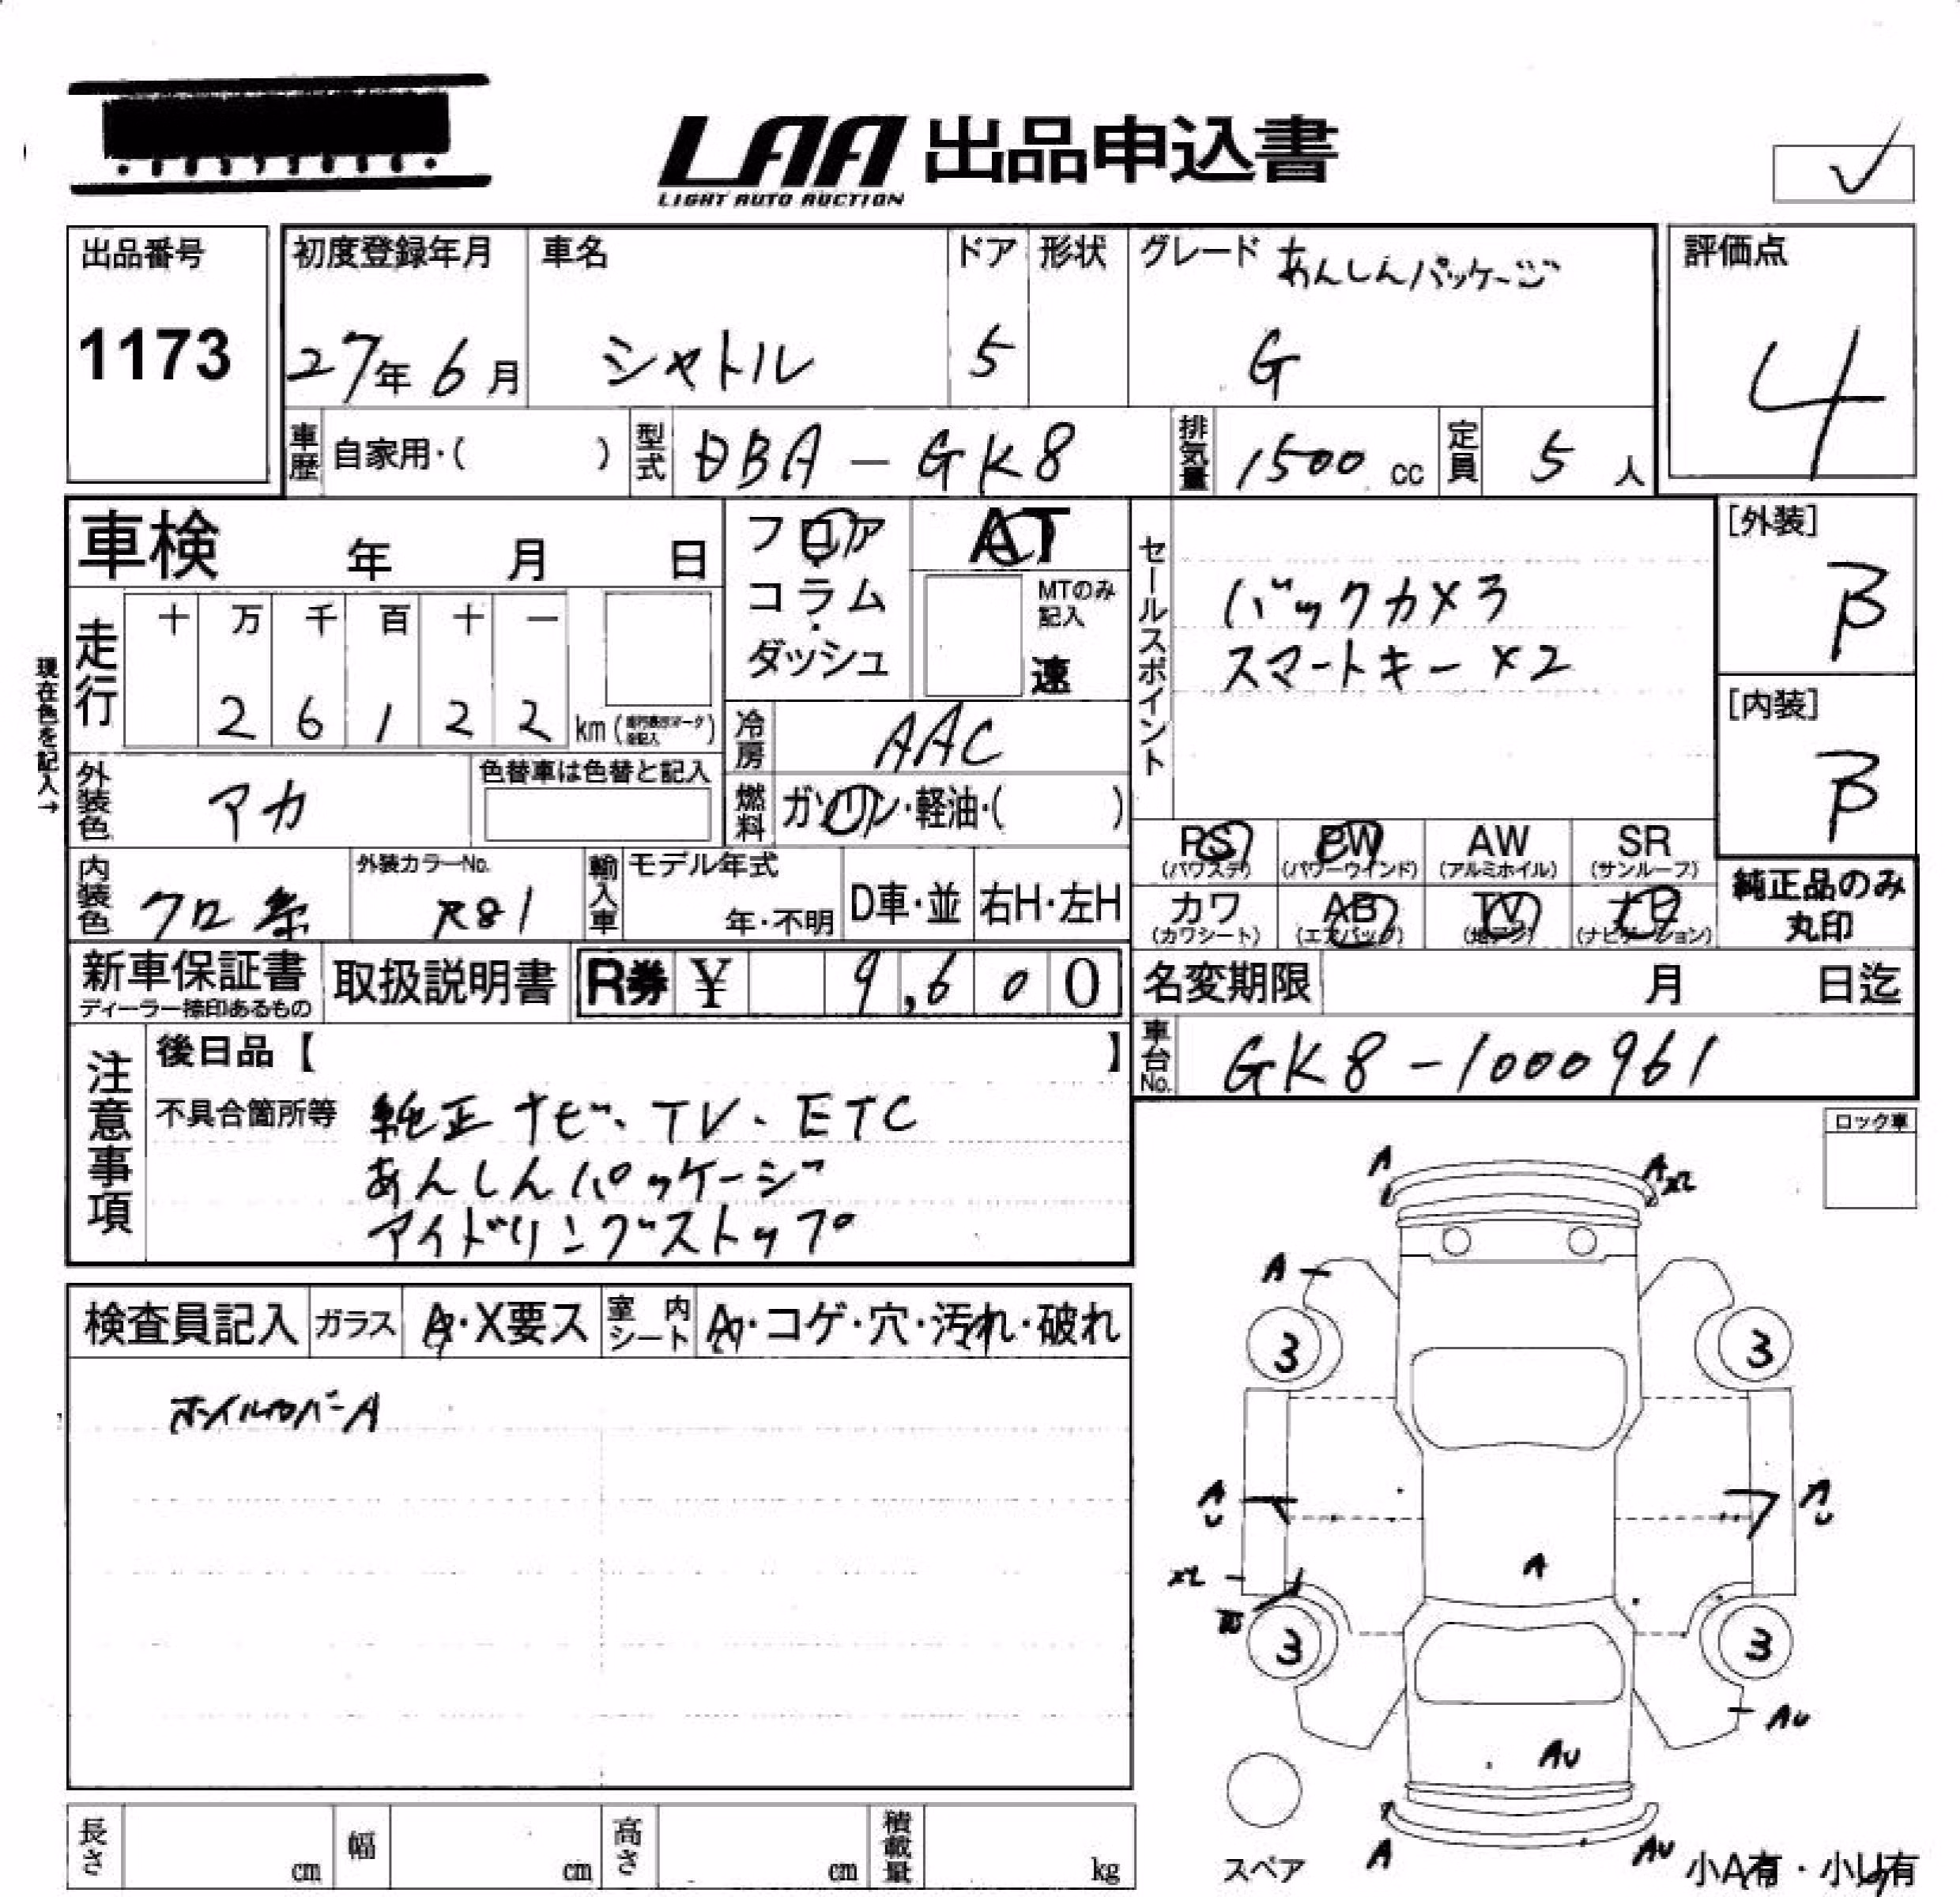 LAA 出品申込書
LIGHT AUTO AUCTION
出品番号
1173
初度登録年月
27年 6月
車名
シャトル
ドア
5
形状
グレード あんしんパッケージ
G
評価点
4
車歴 自家用・( )
型式 DBA-GK8
排気量 1500 cc
定員 5 人
車検 年 月 日
フロア
コラム
・
ダッシュ
AT
MTのみ
記入
速
セールスポイント
バックカメラ
スマートキー×2
[外装]
B
[内装]
B
現在色を記入→
走行
十 万 千 百 十 一
2 6 1 2 2 km
冷房 AAC
外装色 アカ
色替車は色替と記入
燃料 ガソリン・軽油・( )
内装色 クロ系
外装カラーNo.
R81
輸入車
モデル年式
年・不明
D車・並
右H・左H
PS PW AW SR
(パワステ) (パワーウインド) (アルミホイル) (サンルーフ)
カワ AB TV ナビ
(カワシート) (エアバック) (地デジ) (ナビゲーション)
純正品のみ
丸印
新車保証書
ディーラー捺印あるもの
取扱説明書
R券 ¥ 9,600
名変期限 月 日迄
車台No. GK8-1000961
注意事項
後日品【 】
不具合箇所等 純正ナビ、TV、ETC
あんしんパッケージ
アイドリングストップ
ロック車
検査員記入
ガラス A・X要ス
室内シート A・コゲ・穴・汚れ・破れ
ホイルカバーA
A A
A
3 3
A
U
A
U
A
3 3
AU
AU
A AU
スペア
小A有・小U有
長さ cm
幅 cm
高さ cm
積載量 kg